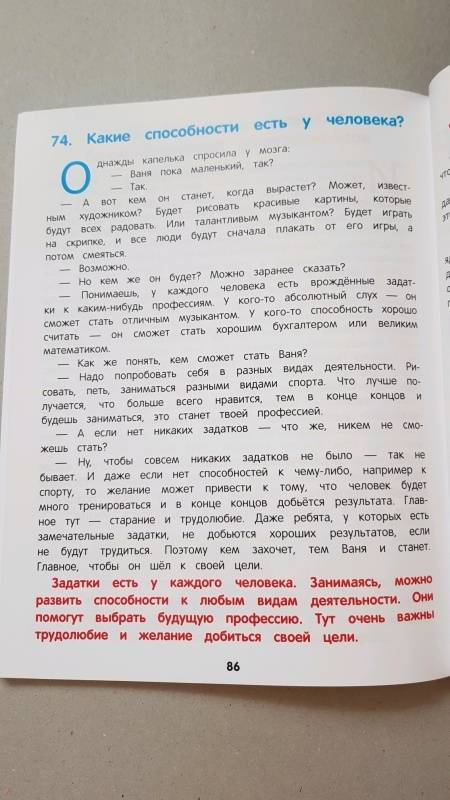 74. Какие способности есть у человека?
Однажды капелька спросила у мозга:
— Ваня пока маленький, так?
— Так.
— А вот кем он станет, когда вырастет? Может, извест-
ным художником? Будет рисовать красивые картины, которые
будут всех радовать. Или талантливым музыкантом? Будет играть
на скрипке, и все люди будут сначала плакать от его игры, а
потом смеяться.
— Возможно.
— Но кем же он будет? Можно заранее сказать?
— Понимаешь, у каждого человека есть врождённые задат-
ки к каким-нибудь профессиям. У кого-то абсолютный слух — он
сможет стать отличным музыкантом. У кого-то способность хорошо
считать — он сможет стать хорошим бухгалтером или великим
математиком.
— Как же понять, кем сможет стать Ваня?
— Надо попробовать себя в разных видах деятельности. Ри-
совать, петь, заниматься разными видами спорта. Что лучше по-
лучается, что больше всего нравится, тем в конце концов и
будешь заниматься, это станет твоей профессией.
— А если нет никаких задатков — что же, никем не смо-
жешь стать?
— Ну, чтобы совсем никаких задатков не было — так не
бывает. И даже если нет способностей к чему-либо, например к
спорту, то желание может привести к тому, что человек будет
много тренироваться и в конце концов добьётся результата. Глав-
ное тут — старание и трудолюбие. Даже ребята, у которых есть
замечательные задатки, не добьются хороших результатов, если
не будут трудиться. Поэтому кем захочет, тем Ваня и станет.
Главное, чтобы он шёл к своей цели.
Задатки есть у каждого человека. Занимаясь, можно
развить способности к любым видам деятельности. Они
помогут выбрать будущую профессию. Тут очень важны
трудолюбие и желание добиться своей цели.
86